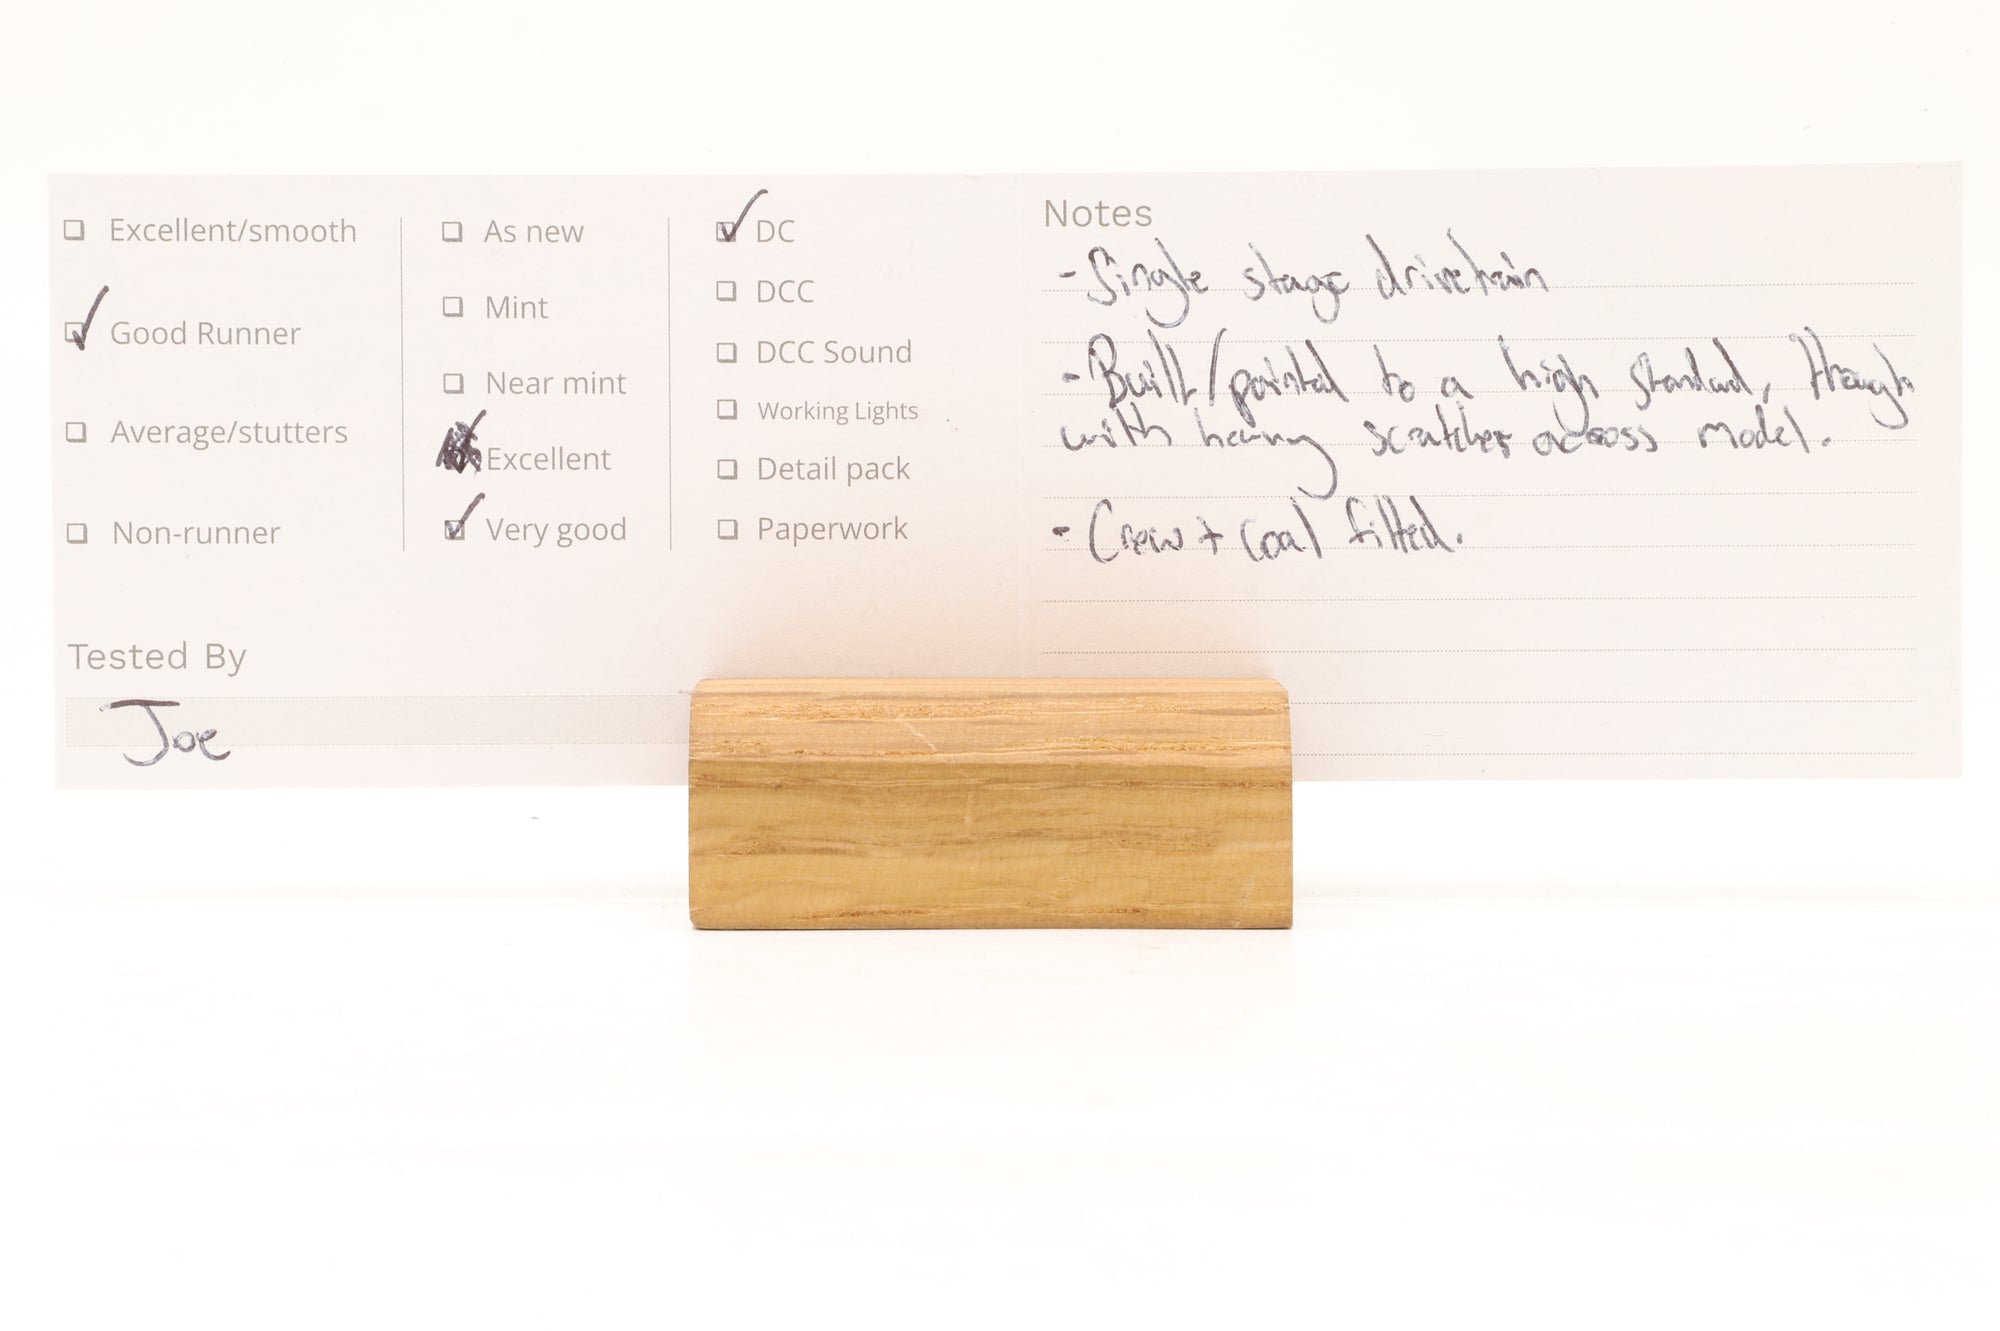 Excellent/smooth
Good Runner
Average/stutters
Non-runner
As new
Mint
Near mint
Excellent
Very good
DC
DCC
DCC Sound
Working Lights
Detail pack
Paperwork
Tested By
Joe
Notes
- Single stage drivetrain
- Built/painted to a high standard, though
with heavy scratches across model.
- Crew + coal fitted.